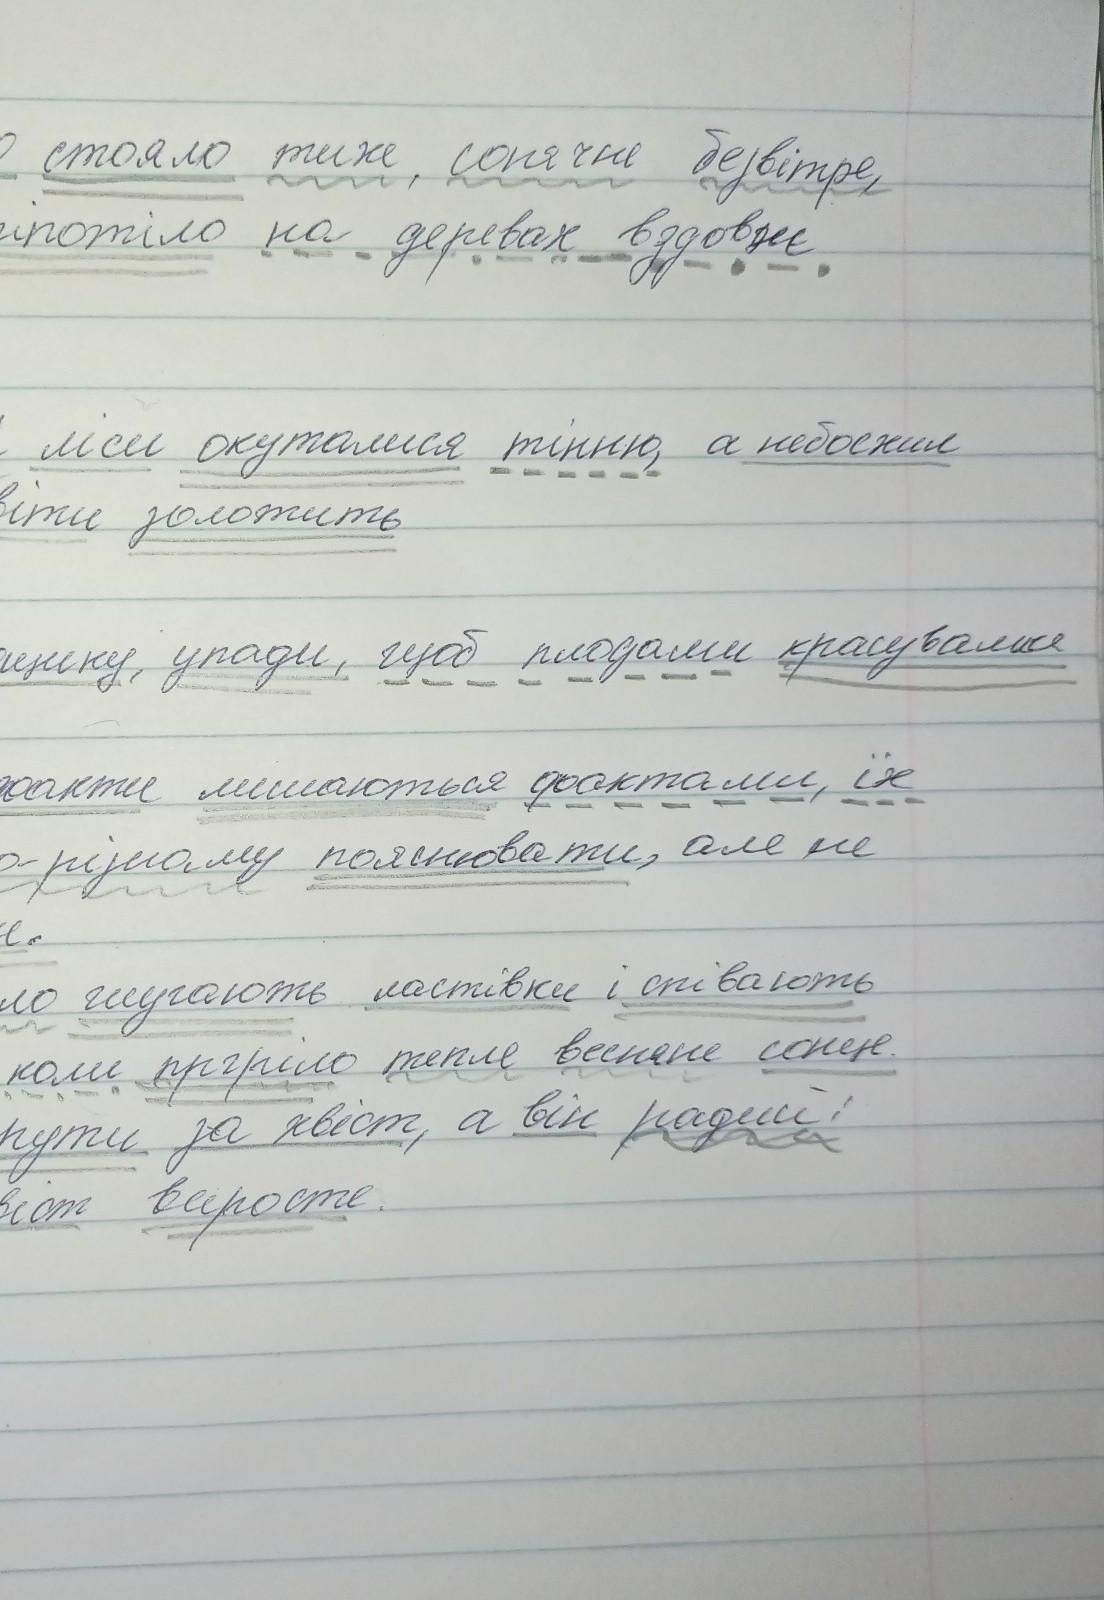 о стояло тихе, сонячне безвітре,
іпотіло на деревах вздовж
ліси окуталися тінню, а небосхил
віти золотить
щику, упади, щоб плодами красувалися
факти лишаються фактами, їх
о-різному пояснювати, але не
ло шугають ластівки і співають
коли пргріло тепле весняне сонце.
нути за хвіст, а він радий:
віст виросте.